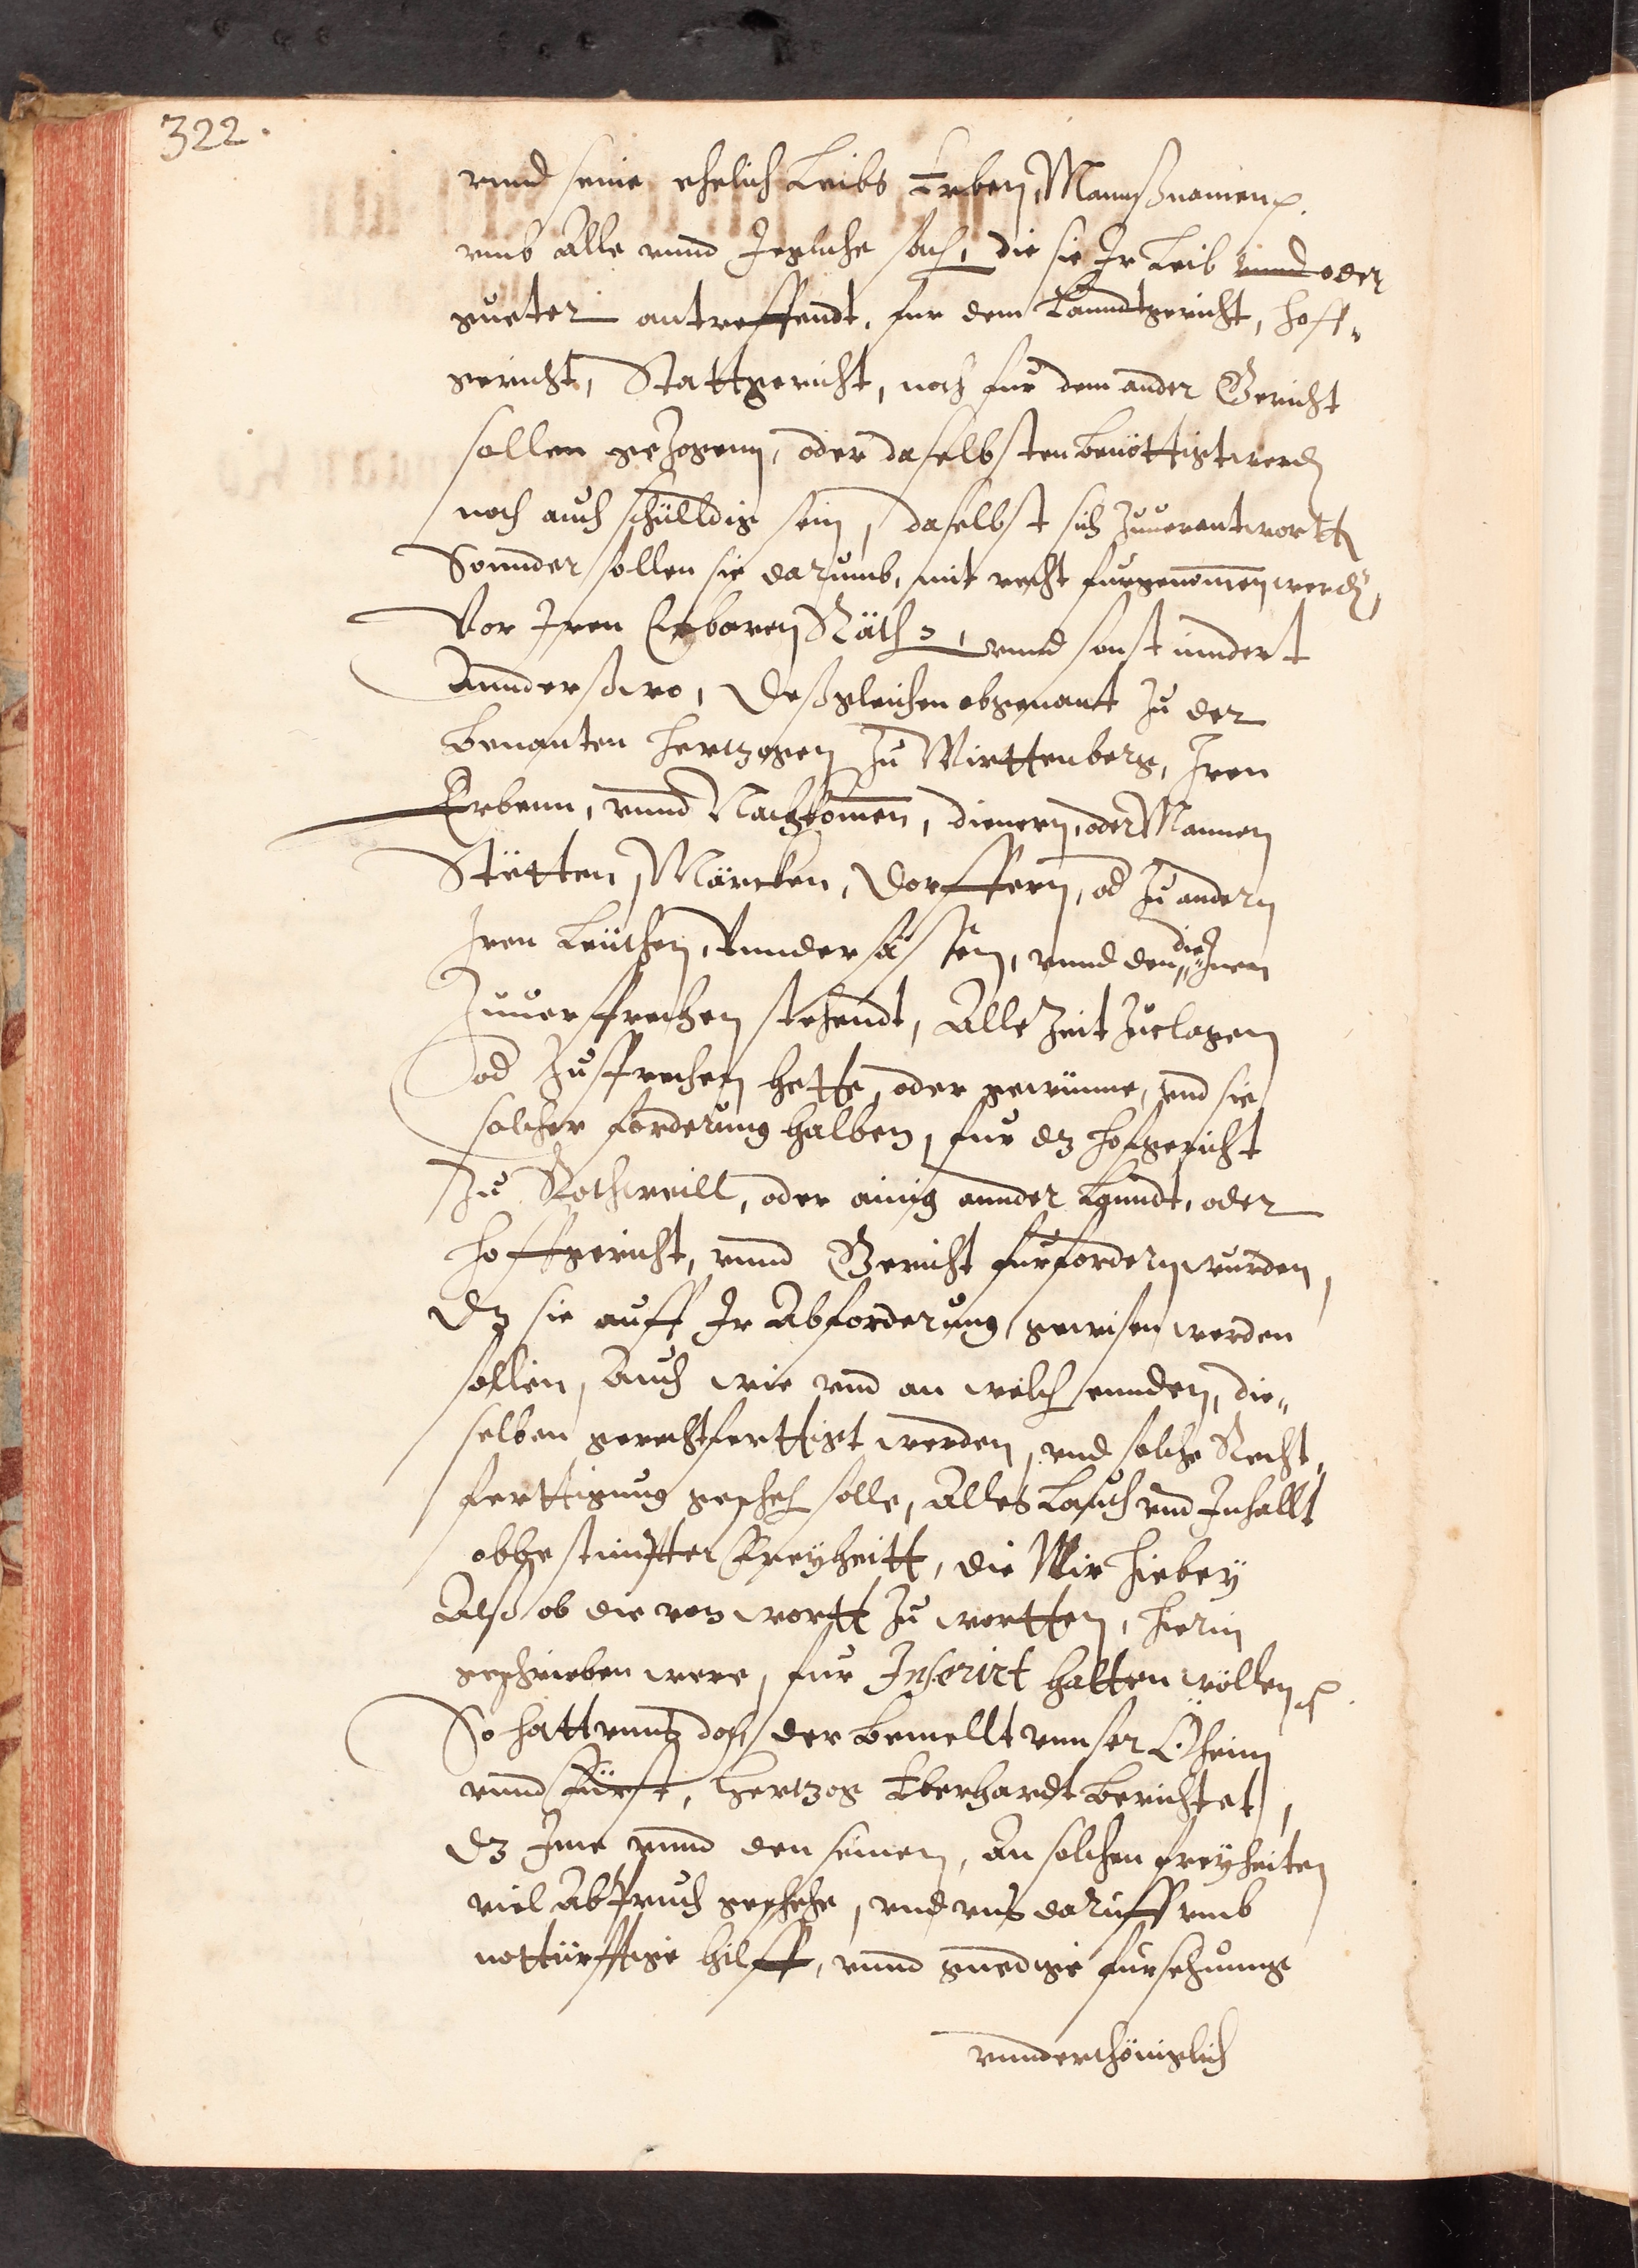 322.
vnnd seine ehelich Leibs Erben, Mannßnamen ꝛc.
vmb Alle vnnd Jegliche sach, die sie Jr Leib vnnd oder
gueter antreffendt, fur dem Lanndtgericht, hoff-
gericht, Stattgericht, noch fur dem ander Gericht
sollen gezogenn, oder daselbsten benöttigt werdn
noch auch schulldig sein, daselbst sich zuuerantwortn
Sonnder sollen sie darumb, mit recht furgenomen werdn,
Vor Jren Erbaren Räth, vnnd sonst nindert
Annderßwo, Deßgleichen obgenant zu der
benanten Hertzogen zu Wirttenberg, Jren
Erbenn, vnnd Nachkomen, dienern, oder Mannen
Stetten, Märckten, Dorffern, od zu andern
Jren Leuthen, Vnndersässen, vnnd den die Jnen
zuuersprechen stehendt, Alle Zeit zuclagen
od zusprechen hette, oder gewunne, vnd sie
solcher forderung halben, fur dz Hofgericht
zu Rothweill, oder ainig annder Lanndt, oder
Hoffgericht, vnnd Gericht furfordern wurden,
Dz sie auff Jr Abforderung, gewisen werden
sollen, Auch wie vnd an welch ennden, die-
selben gerechtferttigt werden, vnd solche Recht-
ferttigung gescheh solle, Alles Lauth vnd Jnhallt
obbestimpter Freyheitt, die Wir hiebey
Alß ob die von wortt zu wortten, hierin
geschrieben were, fur Jnserirt halten wöllen ꝛc.
So hatt vnns doch der bemellt vnnser Öheim
vnnd Fürst, Hertzog Eberhardt berichtet,
dz Jme vnnd den seinen, An solchen freyheiten
viel Abspruch geschehe, vnd vns daruff vmb
notturfftige hilff, vnnd gnedige fursehunge
vnnderthöniglich